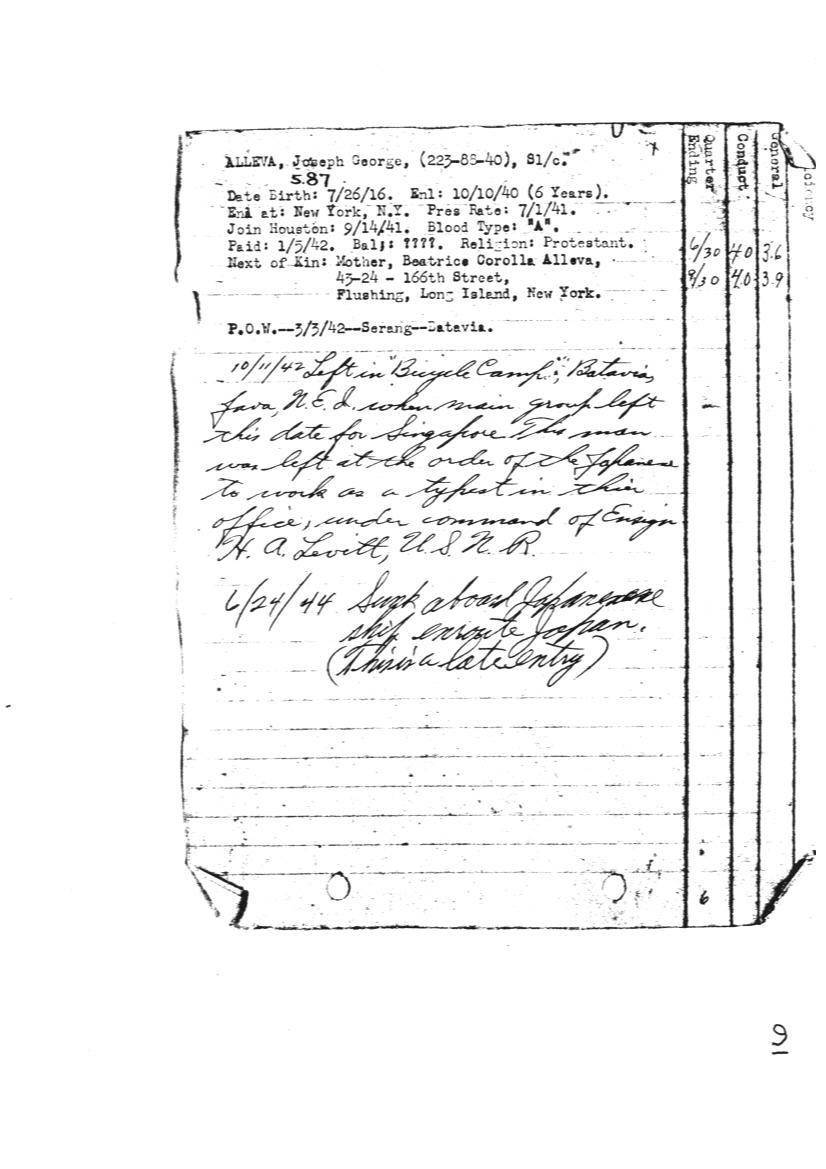 ALLEVA, Joseph George, (223-88-40), S1/c.
5.87
Date Birth: 7/26/16. Enl: 10/10/40 (6 Years).
Enl at: New York, N.Y. Pres Rate: 7/1/41.
Join Houston: 9/14/41. Blood Type: "A".
Paid: 1/5/42. Bal;: ????. Religion: Protestant.
Next of Kin: Mother, Beatrice Corolla Alleva,
43-24 - 166th Street,
Flushing, Long Island, New York.
P.O.W.--3/3/42--Serang--Batavia.
10/11/42 Left in "Bicycle Camp", Batavia,
Java, N.E.I. when main group left
this date for Singapore This man
was left at the order of the Japanese
to work as a typest in thier
office, under command of Ensign
H. A. Levitt, U.S.N.R.
6/24/44 Sunk aboard Japanese
ship enroute Japan.
(This is a late entry)
Quarter Ending Conduct General
6/30 40 3.6
9/30 4.0 3.9
6
9